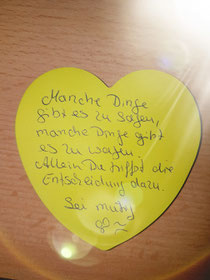 Manche Dinge
gibt es zu sagen,
manche Dinge gibt
es zu wagen.
Allein Du triffst die
Entscheidung dazu.
Sei mutig